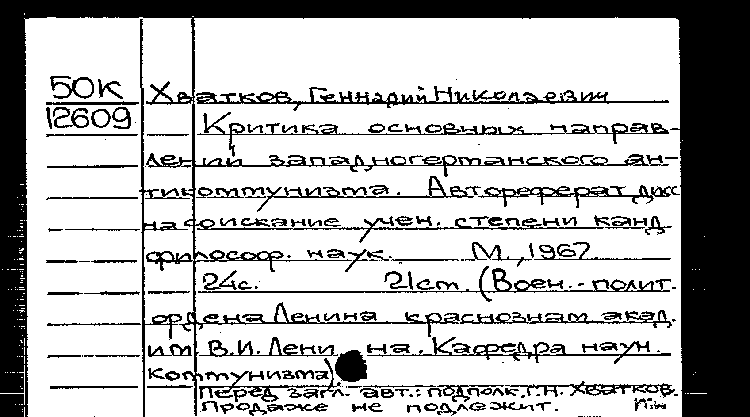 50К Хватков, Геннадий Николаевич
12609 Критика основных направ-
лений западногерманского ан-
тикоммунизма. Автореферат дисс
на соискание учен. степени канд
философ. наук. М., 1967
24с. 21см. (Воен.-полит.
ордена Ленина краснознам акад.
им В.И. Ленина. Кафедра науч.
коммунизма)
Перед загл. авт.: подполк. Г.Н. Хватков.
Продаже не подлежит.